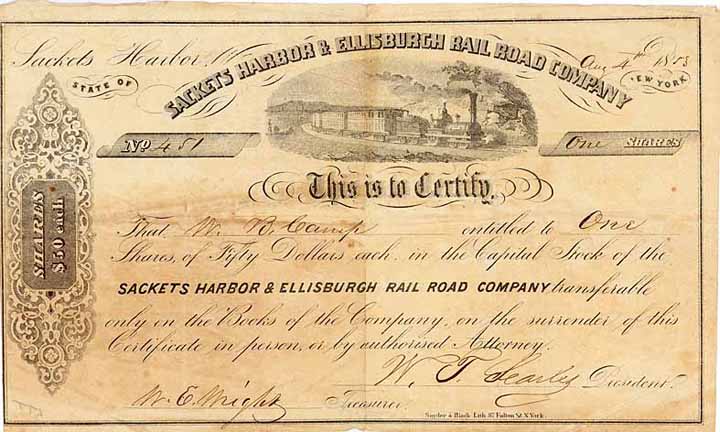 Sackets Harbor Aug 4th 1853
STATE OF NEW YORK
SACKETS HARBOR & ELLISBURGH RAIL ROAD COMPANY
No. 451 One SHARES
SHARES $50 each
This is to Certify,
That W. B. Camp entitled to One
Shares, of Fifty Dollars each, in the Capital Stock of the
SACKETS HARBOR & ELLISBURGH RAIL ROAD COMPANY transferable
only on the Books of the Company, on the surrender of this
Certificate in person, or by authorised Attorney.
W. T. Searles President.
W. E. Wright Treasurer.
Snyder & Black Lith 87 Fulton St. N. York.